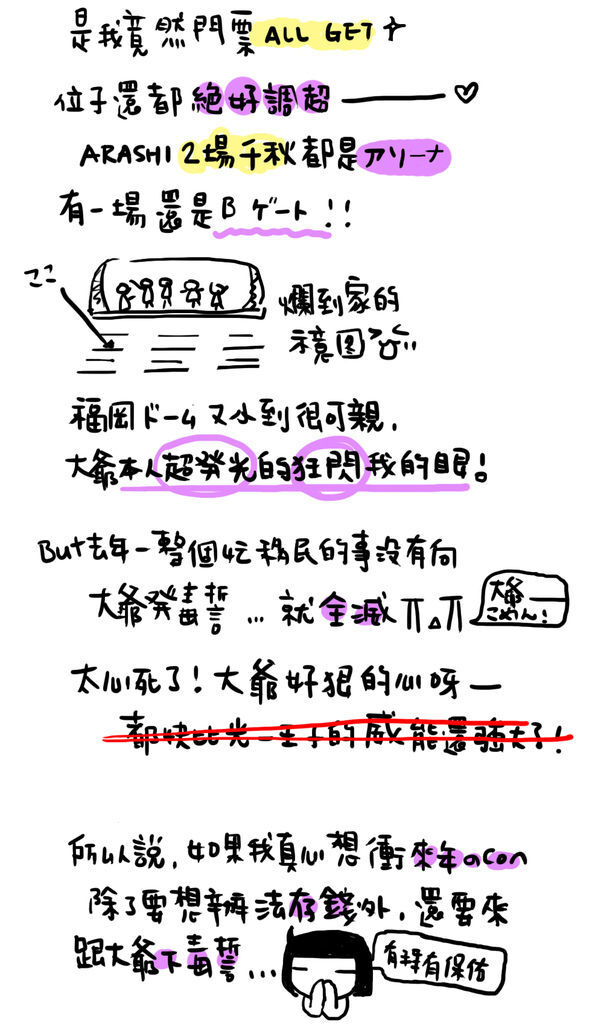 是我竟然門票 ALL GET
位子還都絕好調超——♡
ARASHI 2場千秋都是アリーナ
有一場還是B ゲート!!
ここ
爛到家的
示意图
福岡ドーム又小到很可親,
大爺本人超發光的狂閃我的眼!
But去年一整個忙移民的事沒有向
大爺發毒誓...就全滅 π△π
大爺——
ごめん!
太心死了!大爺好狠的心呀—
都快比光一王子的威能還強大了!
所以說,如果我真心想衝來年のcon
除了要想辦法存錢外,還要來
跟大爺下毒誓...
有拜有保佑